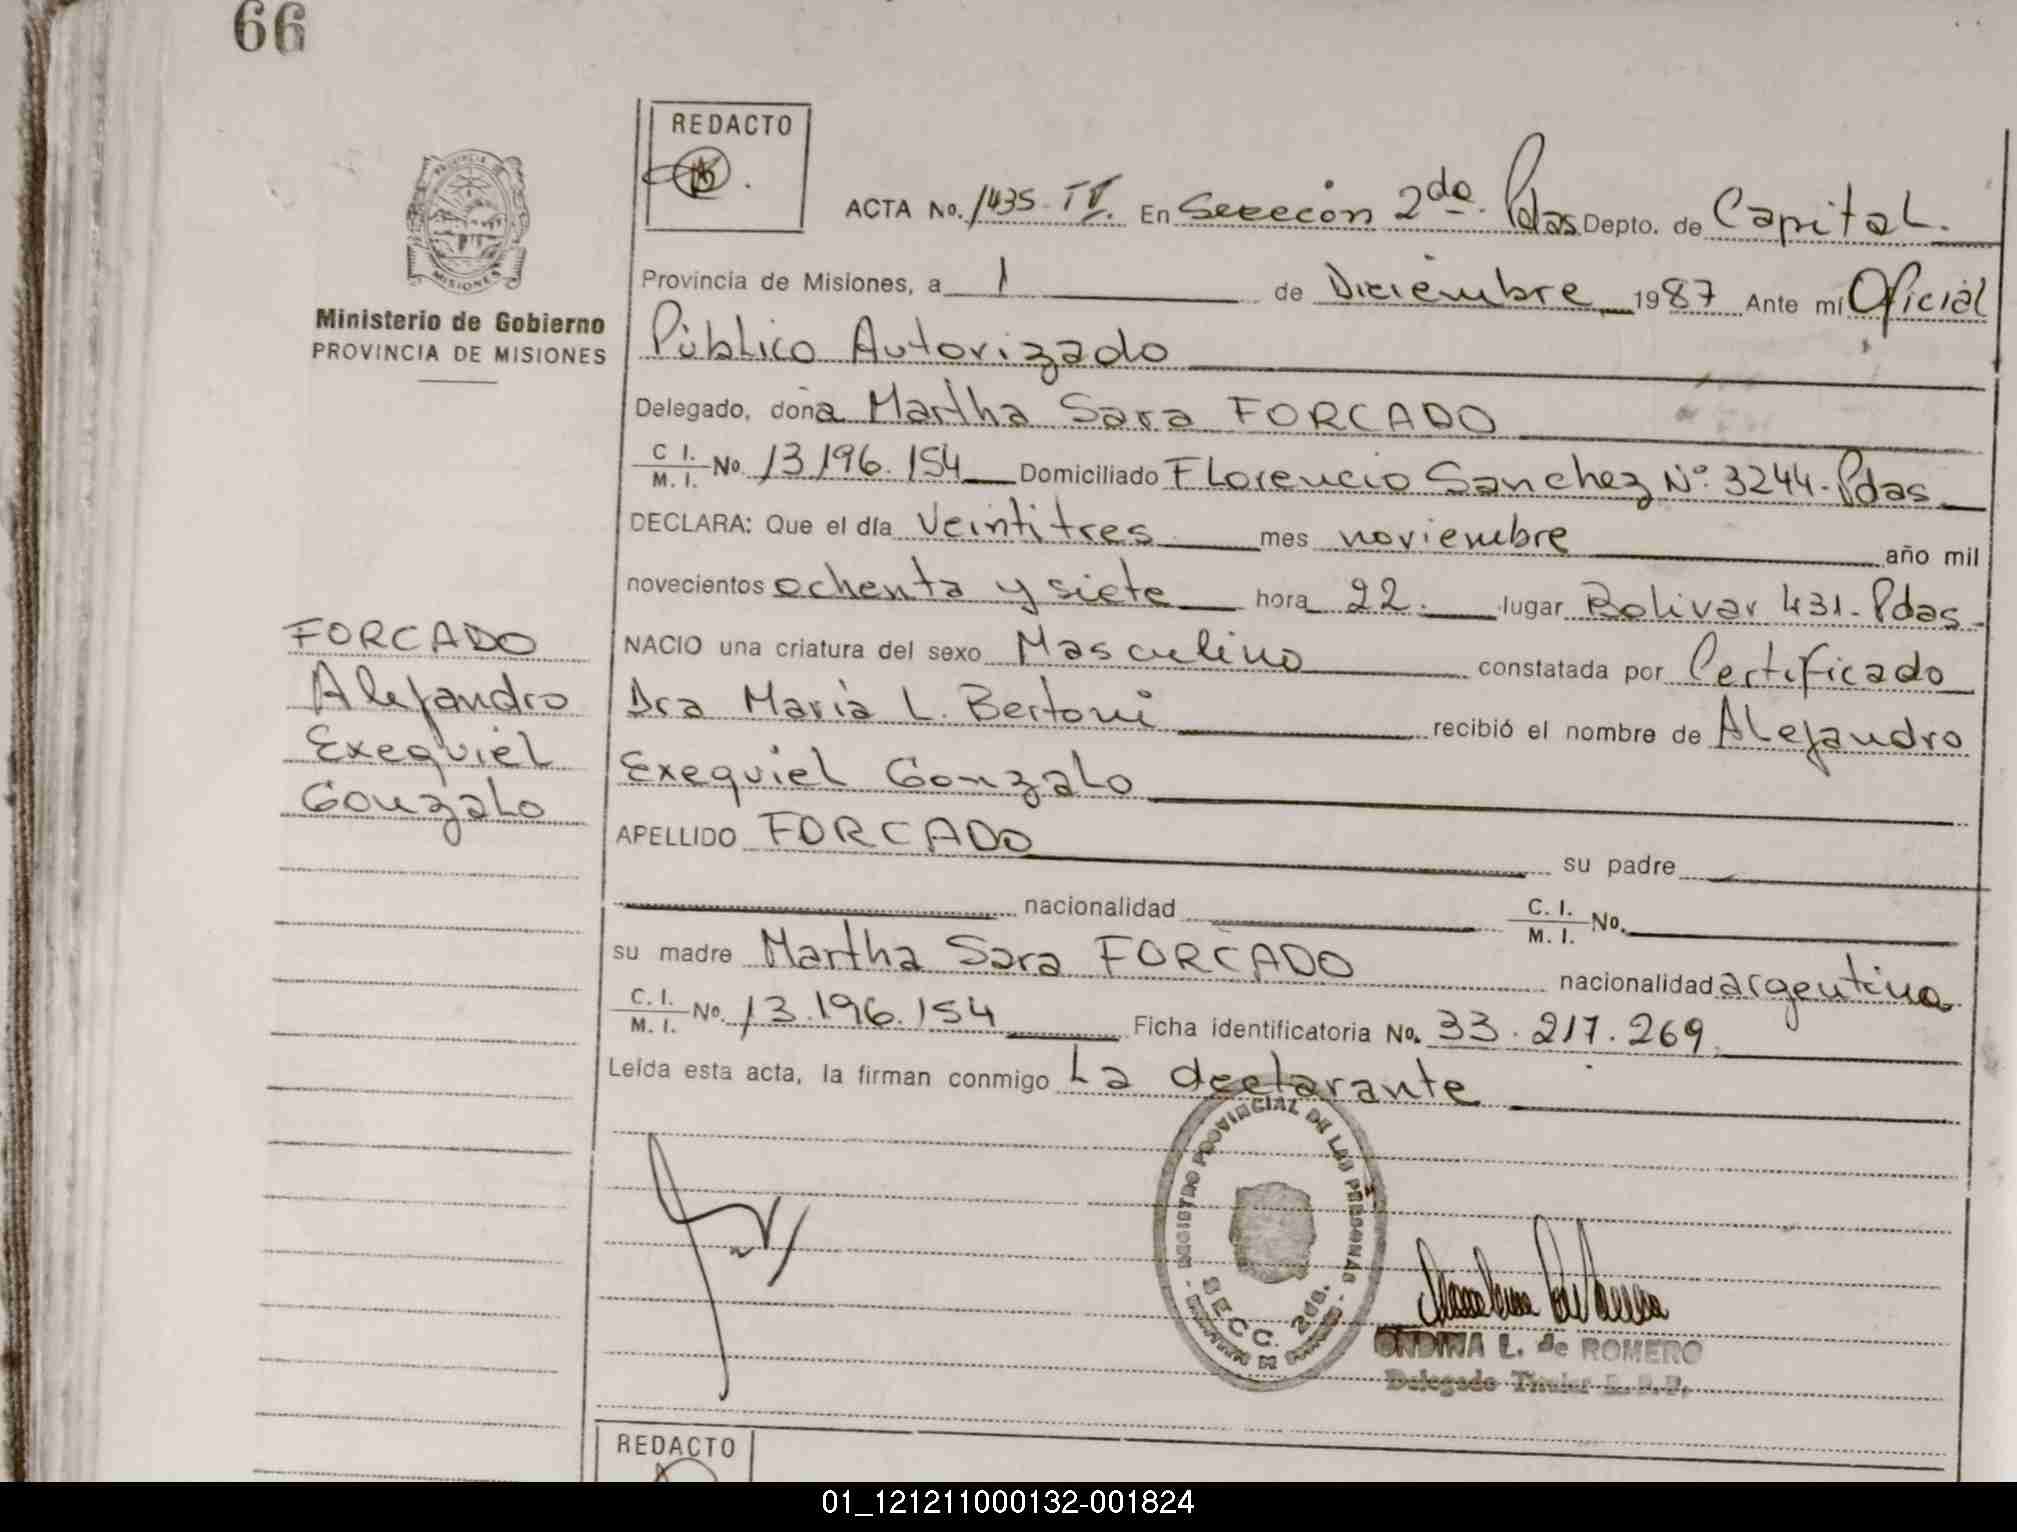 66
REDACTO
ACTA No. 1435-IV. En Seeecón 2da. Pdas Depto. de Capital.
PROVINCIA DE
MISIONES
Ministerio de Gobierno
PROVINCIA DE MISIONES
Provincia de Misiones, a 1 de Diciembre 1987 Ante mí Oficial
Público Autorizado
Delegado, doña Martha Sara FORCADO
C I. / M. I. No. 13196.154 Domiciliado Florencio Sanchez N° 3244-Pdas
DECLARA: Que el día Veintitres mes noviembre año mil
novecientos ochenta y siete hora 22. lugar Bolivar 431-Pdas
NACIO una criatura del sexo Masculino constatada por Certificado
Dra María L. Bertoni recibió el nombre de Alejandro
Exequiel Gonzalo
APELLIDO FORCADO su padre
nacionalidad C. I. / M. I. No.
su madre Martha Sara FORCADO nacionalidad argentina
C. I. / M. I. No. 13.196.154 Ficha identificatoria No. 33.217.269
Leída esta acta, la firman conmigo La declarante
FORCADO
Alejandro
Exequiel
Gonzalo
REGISTRO PROVINCIAL DE LAS PERSONAS
SECC. 2da.
ONDINA L. de ROMERO
Delegado Titular R.P.P.
REDACTO
01_121211000132-001824